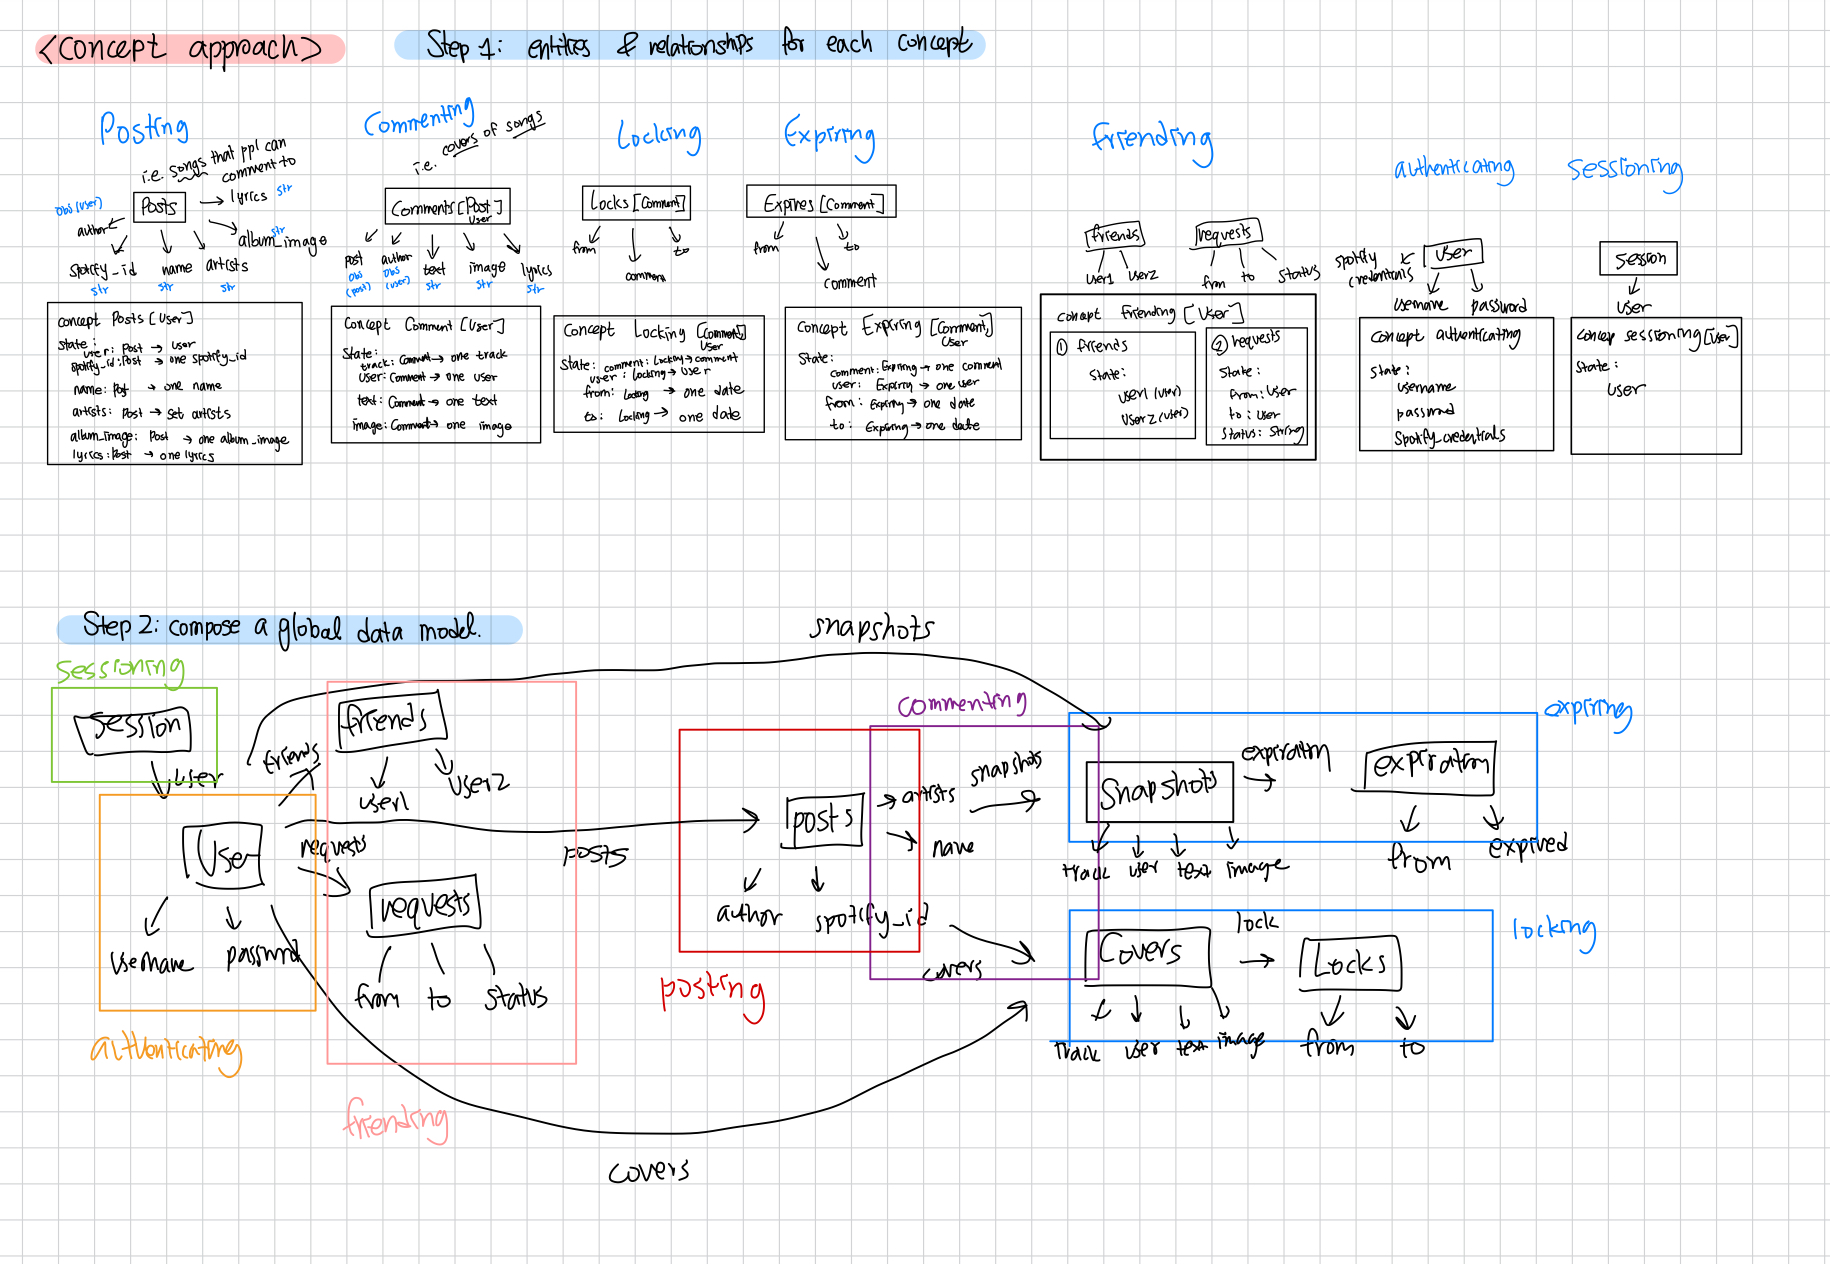 <concept approach>
Step 1: entities & relationships for each concept
Posting
i.e. songs that ppl can
comment to
Posts
obj (user)
author
lyrics str
str
album_image
spotify_id
str
name
str
artists
str
concept Posts [User]
state:
user: Post → user
spotify_id: Post → one spotify_id
name: Post → one name
artists: Post → set artists
album_image: Post → one album_image
lyrics: Post → one lyrics
Commenting
i.e. covers of songs
Comments [Post]
User
post
obj
(post)
author
obj
(user)
text
str
image
str
lyrics
str
Concept Comment [User]
State:
track: Comment → one track
user: Comment → one user
text: Comment → one text
image: Comment → one image
Locking
Locks [Comment]
from
comment
to
Concept Locking [Comment]
User
State: comment: Locking → comment
user: Locking → user
from: Locking → one date
to: Locking → one date
Expiring
Expires [Comment]
from
to
comment
Concept Expiring [Comment]
User
State:
comment: Expiring → one comment
user: Expiring → one user
from: Expiring → one date
to: Expiring → one date
friending
friends
user1
user2
requests
from
to
status
concept friending [User]
① friends
State:
user1 (user)
user2 (user)
② requests
State:
from: user
to: user
status: string
authenticating
spotify
credentials
User
username
password
Concept authenticating
state:
username
password
Spotify_credentials
sessioning
session
user
concep sessioning [User]
State:
user
Step 2: compose a global data model.
sessioning
session
user
User
username
password
authenticating
friends
friends
user1
user2
requests
requests
from
to
status
friending
posts
posts
artists
name
author
spotify_id
posting
commenting
snapshots
snapshots
Snapshots
track
user
text
image
expiration
expiration
from
expired
expiring
covers
covers
Covers
track
user
text
image
lock
Locks
from
to
locking